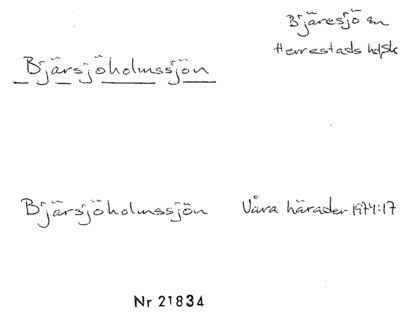 Bjäresjö sn
Herrestads hd, Sk
Bjärsjöholmssjön
Bjärsjöholmssjön Våra härader 1974:17
Nr 21834